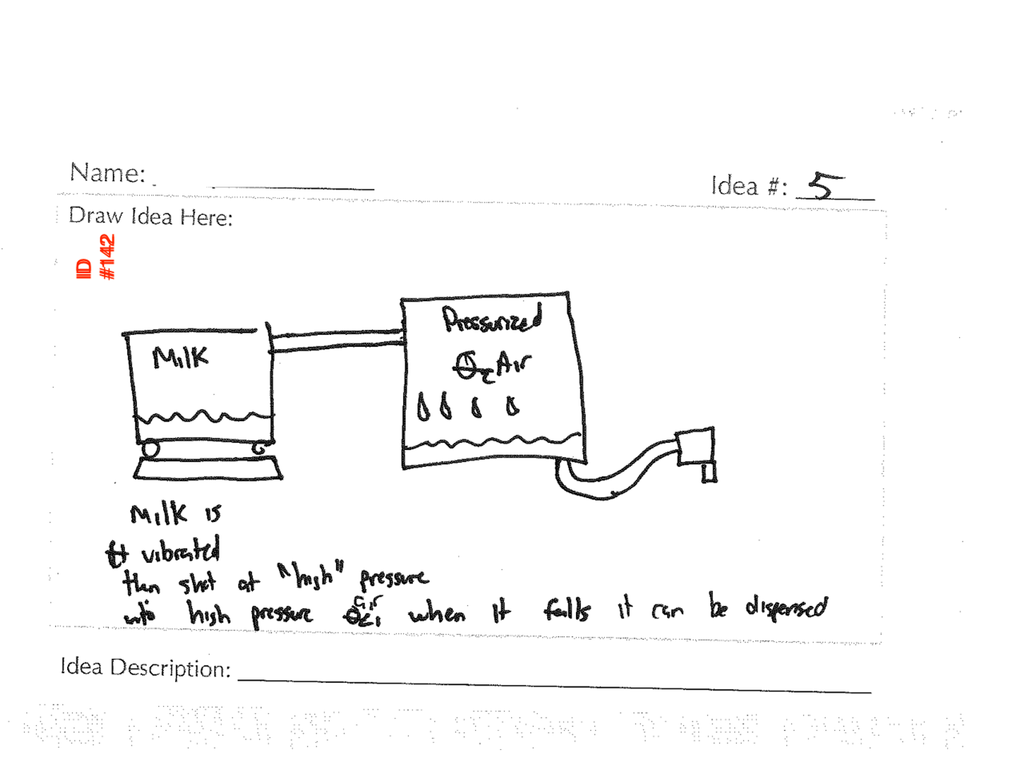 Name:
Idea #: 5
Draw Idea Here:
IID
#142
Pressurized
Milk
Air
Milk is
vibrated
then shot at "high" pressure
air
into high pressure when it falls it can be dispensed
Idea Description: